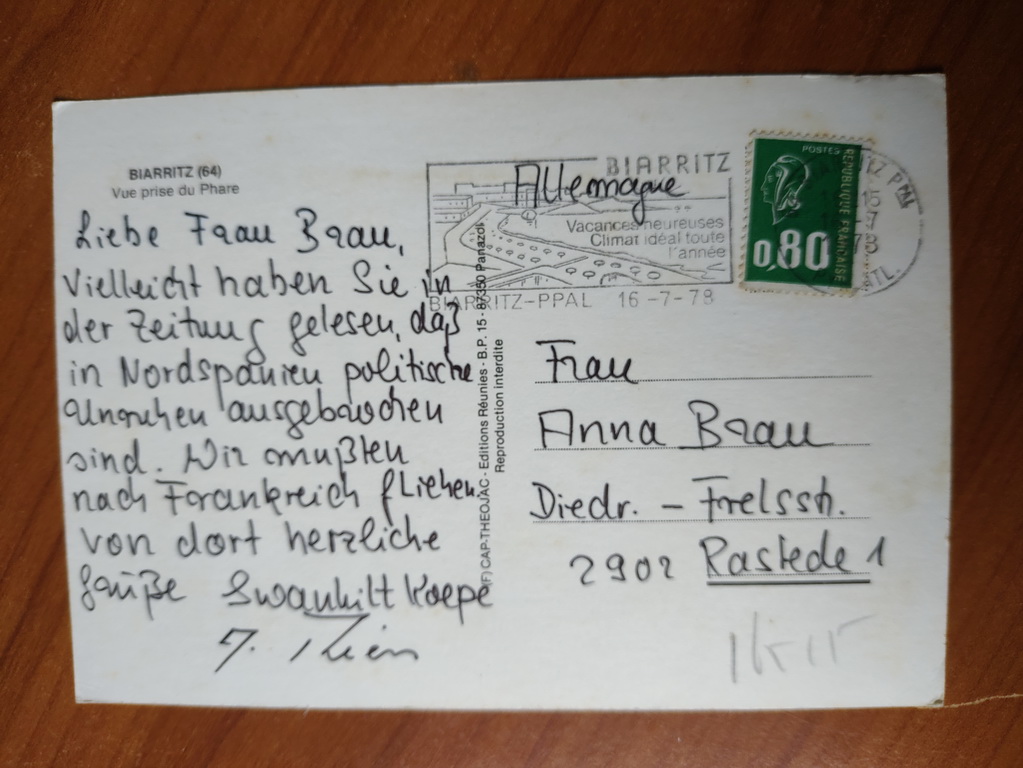 BIARRITZ (64)
Vue prise du Phare
Liebe Frau Brau,
Vielleicht haben Sie in
der Zeitung gelesen, daß
in Nordspanien politische
Unruhen ausgebrochen
sind. Wir mußten
nach Frankreich fliehen.
von dort herzliche
Grüße Swanhilt Koepe
(F) CAP-THEOJAC - Editions Réunies - B.P. 15 - 87350 Panazol
Reproduction interdite
BIARRITZ
Allemagne
Vacances heureuses
Climat idéal toute
l'année
BIARRITZ-PPAL 16-7-78
POSTES
REPUBLIQUE FRANCAISE
0,80
15
Frau
Anna Brau
Diedr. - Frelsstr.
2902 Rastede 1